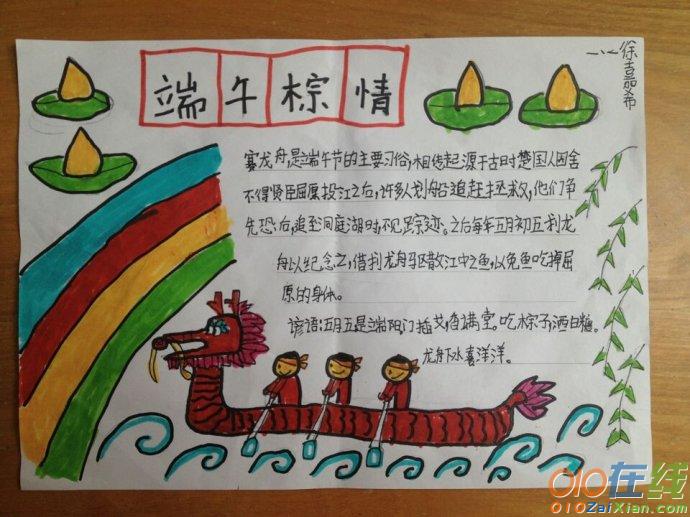 端午棕情
一八徐嘉希
赛龙舟,是端午节的主要习俗,相传起源于古时楚国人因舍
不得贤臣屈原投江之后,许多人划船追赶拯救,他们争
先恐后,追至洞庭湖时不见踪迹。之后每年五月初五划龙
舟以纪念之,借划龙舟驱散江中之鱼,以免鱼吃掉屈
原的身体。
谚语:五月五是端阳门插艾香满堂。吃粽子洒白糖。
龙舟下水喜洋洋。
010在线
010ZaiXian.com